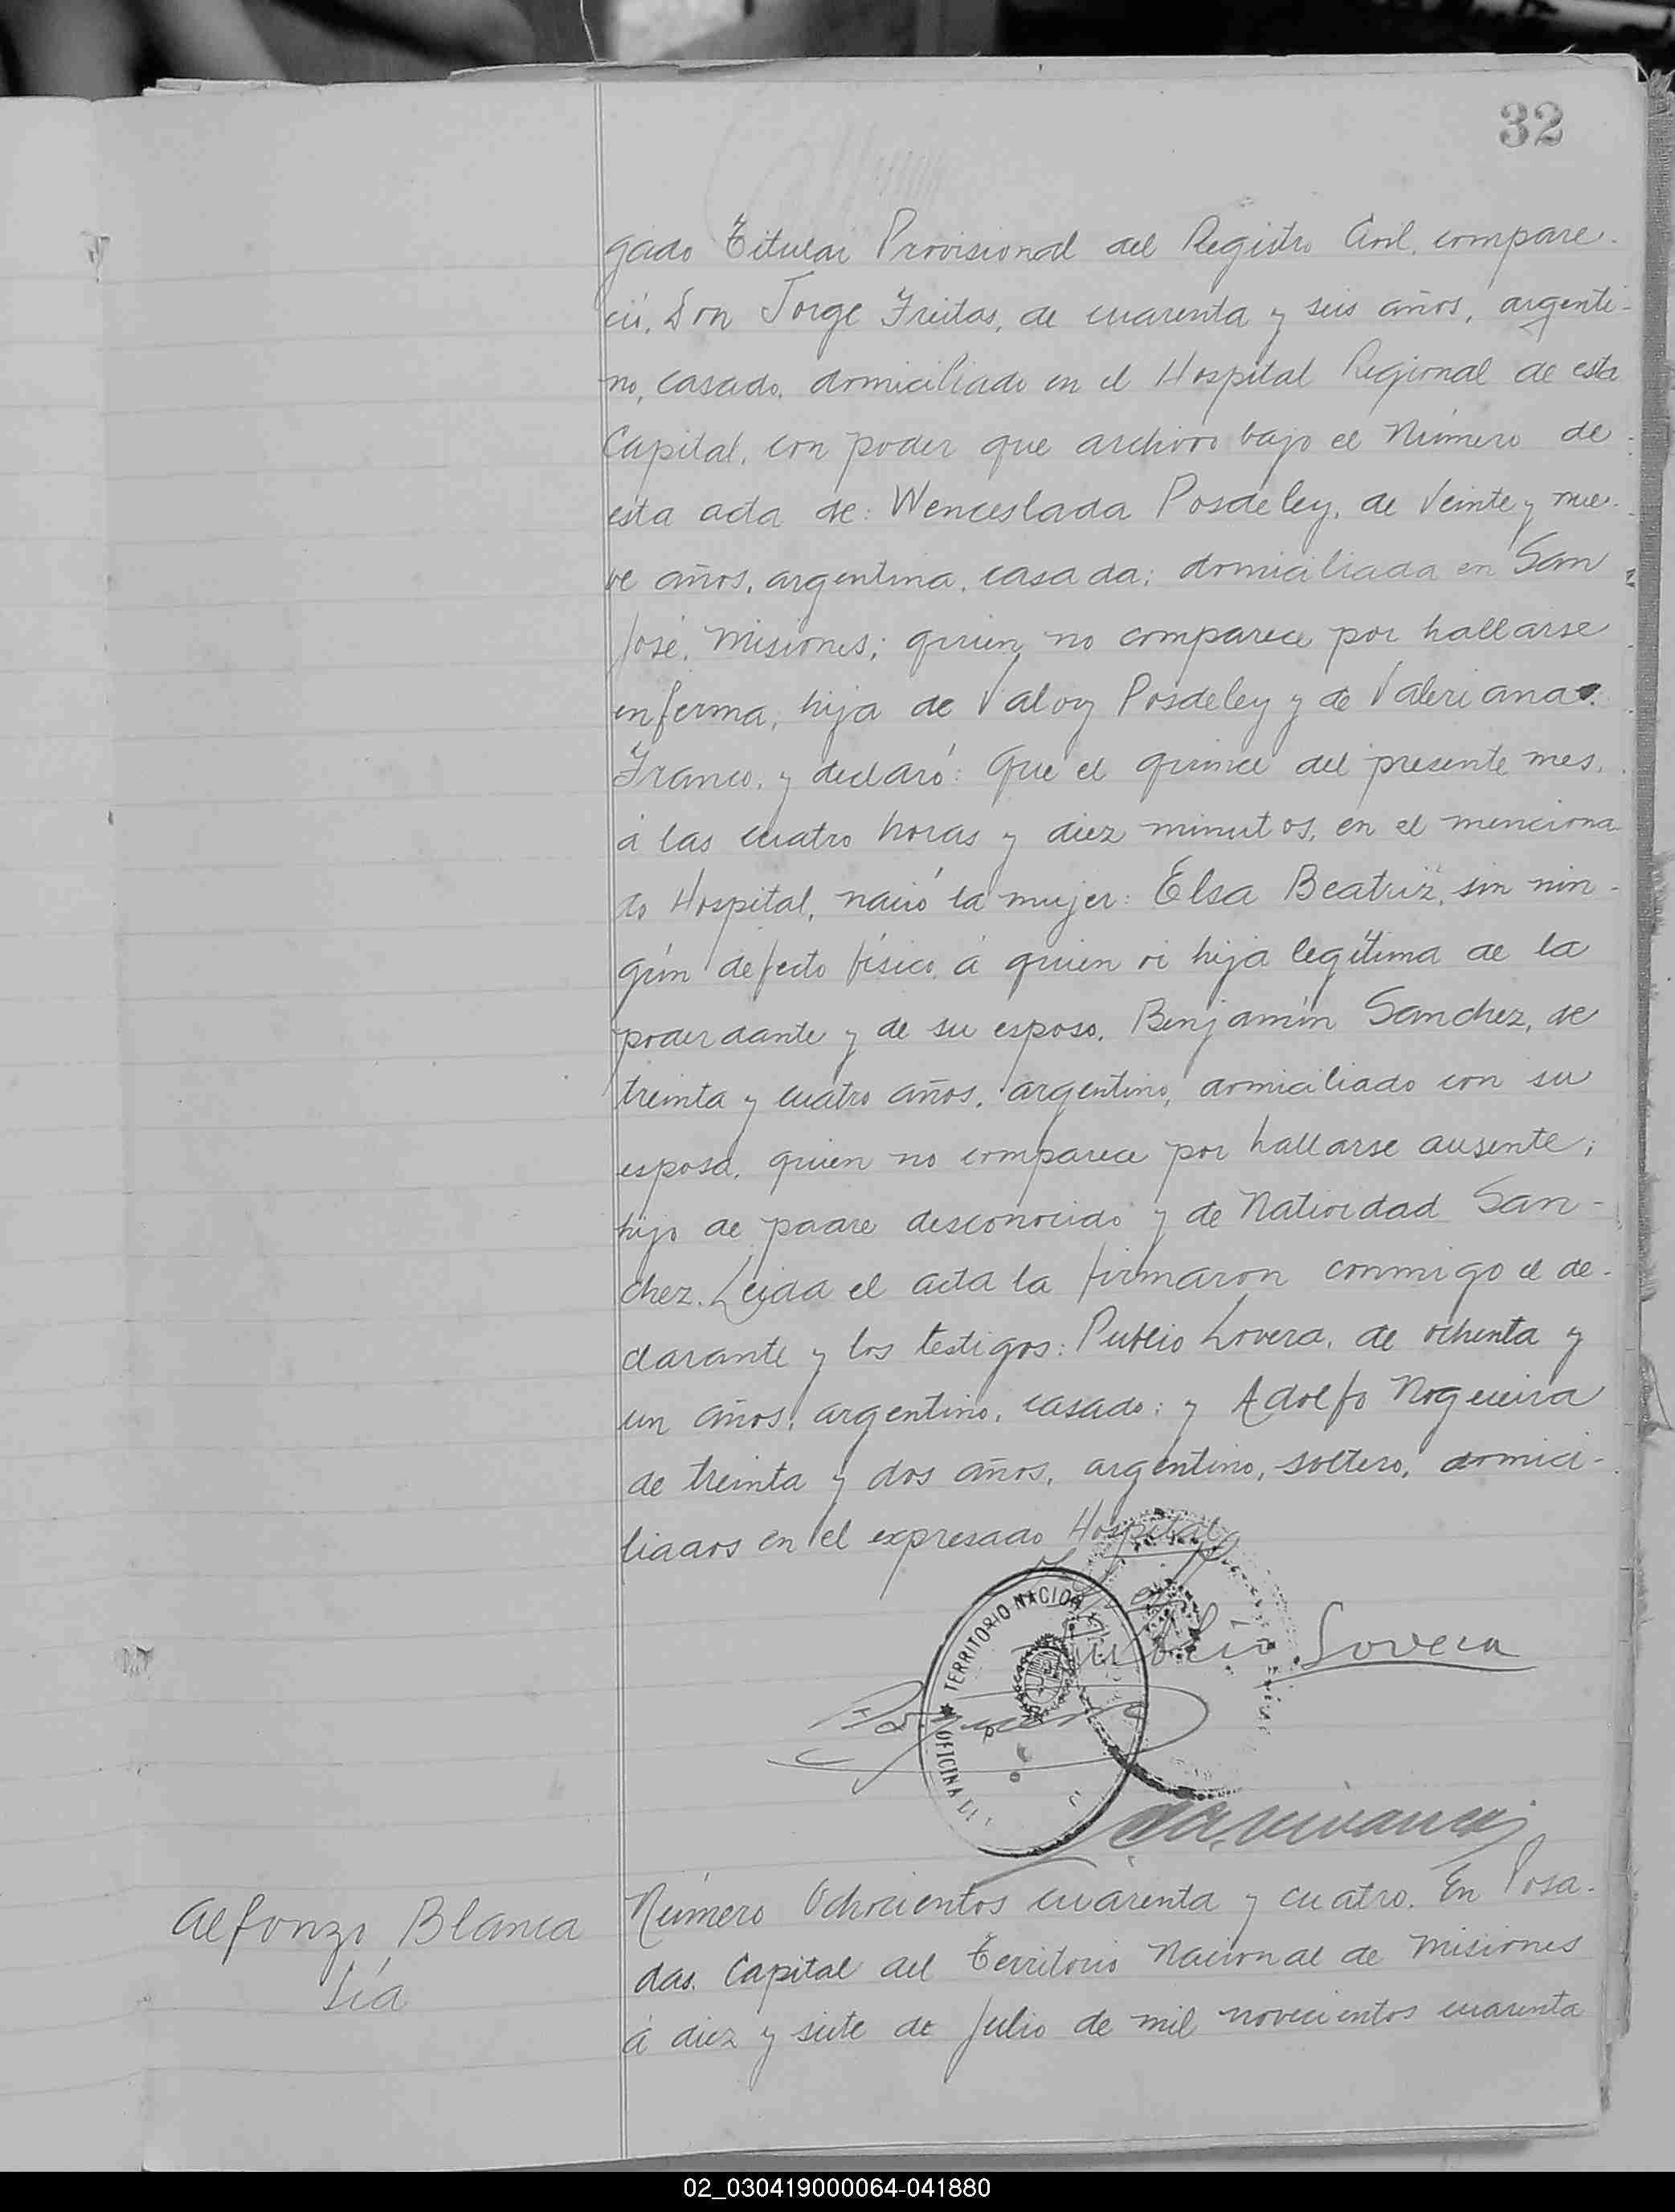 32
gado Titular Provisional del Registro Civil, compare-
ció, Don Jorge Freitas, de cuarenta y seis años, argenti-
no, casado, domiciliado en el Hospital Regional de esta
Capital, con poder que archivo bajo el Número de
esta acta de: Wenceslada Posdeley, de veinte y nue-
ve años, argentina, casada; domiciliada en San
José, Misiones; quien no comparece por hallarse
enferma, hija de Valoy Posdeley y de Valeriana
Franco, y declaró: Que el quince del presente mes,
á las cuatro horas y diez minutos, en el menciona
do Hospital, nació la mujer: Elsa Beatriz, sin nin-
gún defecto físico, á quien vi hija legítima de la
poderdante y de su esposo, Benjamín Sanchez, de
treinta y cuatro años, argentino, domiciliado con su
esposa, quien no comparece por hallarse ausente;
hijo de padre desconocido y de Natividad San-
chez. Leida el acta la firmaron conmigo el de-
clarante y los testigos: Publio Lovera, de ochenta y
un años, argentino, casado; y Adolfo Nogueira
de treinta y dos años, argentino, soltero, domici-
liados en el expresado Hospital
TERRITORIO NACION
OFICINA DE
Publio Lovera
Alfonzo, Blanca
Lía
Número Ochocientos cuarenta y cuatro. En Posa-
das, Capital del Territorio Nacional de Misiones
á diez y siete de Julio de mil novecientos cuarenta
02_030419000064-041880